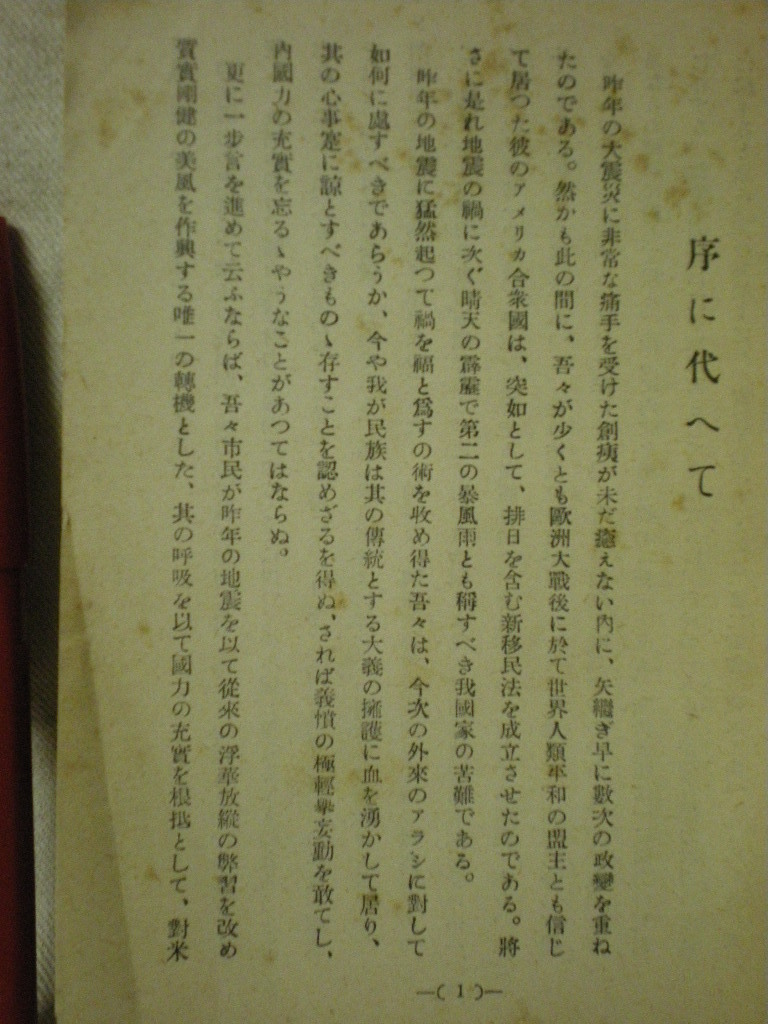 序に代へて
昨年の大震災に非常な痛手を受けた創痍が未だ癒えない内に、矢繼ぎ早に數次の政變を重ね
たのである。然かも此の間に、吾々が少くとも歐洲大戰後に於て世界人類平和の盟主とも信じ
て居つた彼のアメリカ合衆國は、突如として、排日を含む新移民法を成立させたのである。將
さに是れ地震の禍に次ぐ晴天の霹靂で第二の暴風雨とも稱すべき我國家の苦難である。
昨年の地震に猛然起つて禍を福と爲すの術を收め得た吾々は、今次の外來のアラシに對して
如何に處すべきであらうか、今や我が民族は其の傳統とする大義の擁護に血を湧かして居り、
其の心事寔に諒とすべきものゝ存することを認めざるを得ぬ、されば義憤の極輕擧妄動を敢てし、
內國力の充實を忘るゝやうなことがあつてはならぬ。
更に一步言を進めて云ふならば、吾々市民が昨年の地震を以て從來の浮華放縱の弊習を改め
質實剛健の美風を作興する唯一の轉機とした、其の呼吸を以て國力の充實を根柢として、對米
—( 1 )—